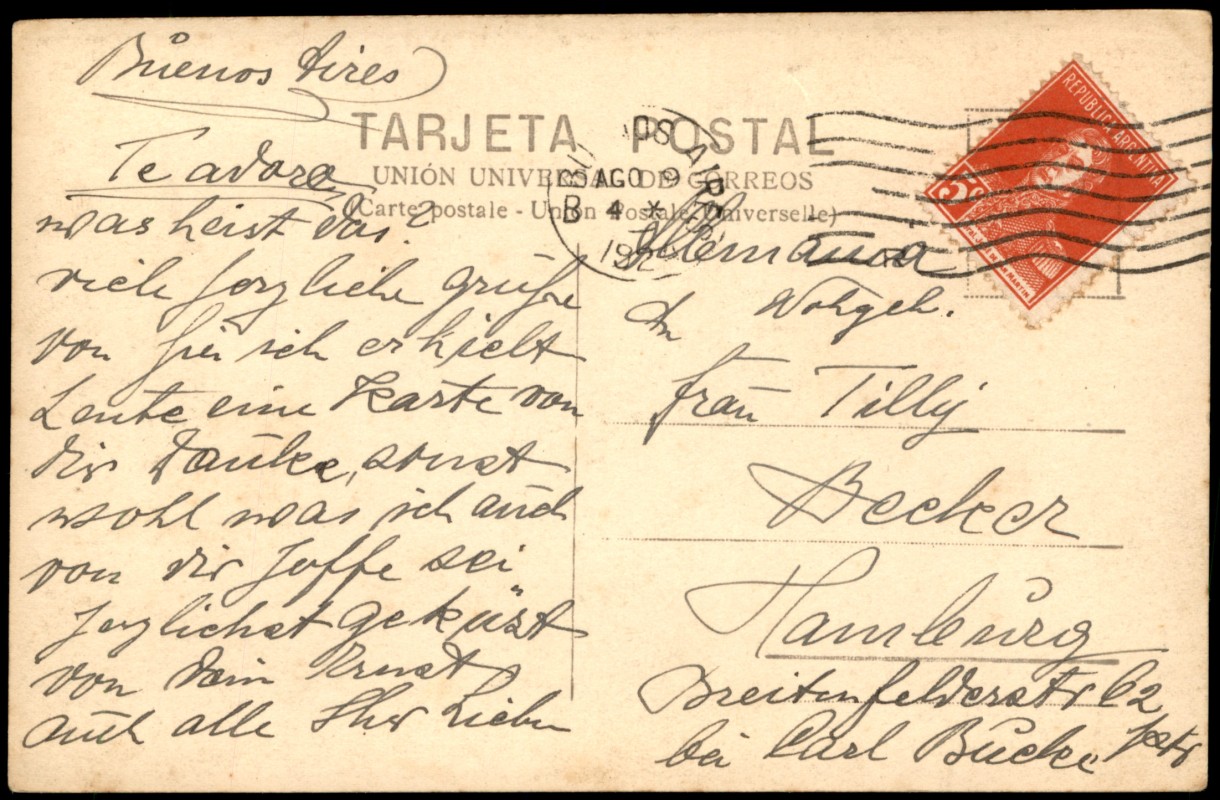 Buenos Aires
TARJETA POSTAL
UNIÓN UNIVERSAL DE CORREOS
(Carte postale - Union Postale Universelle)
Te adoro
was heist das?
viele herzliche grüße
von hier ich erhielt
heute eine Karte von
dir Danke, sonst
wohl was ich auch
von dir hoffe sei
herzlichst geküst
von dein Ernst
auch alle Ihr Lieben
REPUBLICA ARGENTINA
5
OS AIRES
AGO 9
B 4 *
Alemania
An Wohlgeb.
Frau Tilly
Becker
Hamburg
Breitenfelderstr 62
bei Carl Bucke